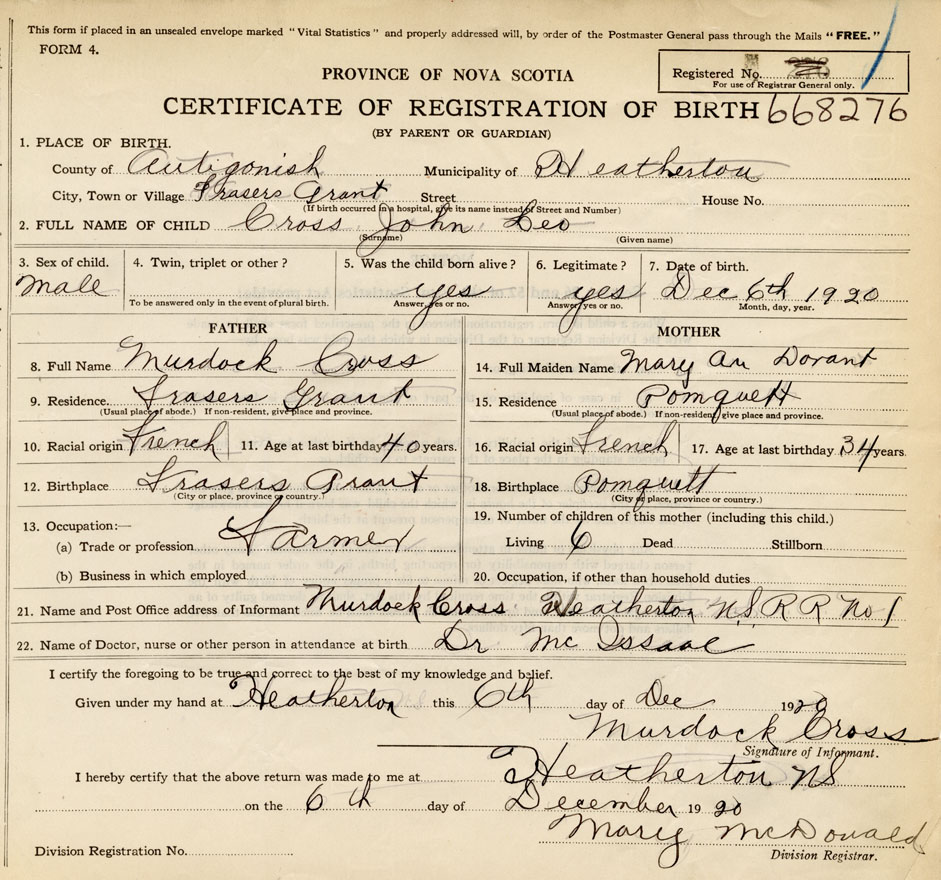 This form if placed in an unsealed envelope marked "Vital Statistics" and properly addressed will, by order of the Postmaster General pass through the Mails "FREE."
FORM 4.
Registered No.
For use of Registrar General only.
PROVINCE OF NOVA SCOTIA
CERTIFICATE OF REGISTRATION OF BIRTH 668276
(BY PARENT OR GUARDIAN)
1. PLACE OF BIRTH.
County of Antigonish Municipality of Heatherton
City, Town or Village Frasers Grant Street House No.
(If birth occurred in a hospital, give its name instead of Street and Number)
2. FULL NAME OF CHILD Cross John Leo
(Surname) (Given name)
3. Sex of child. 4. Twin, triplet or other? 5. Was the child born alive? 6. Legitimate? 7. Date of birth.
Male yes yes Dec 6th 1920
To be answered only in the event of plural birth. Answer, yes or no. Answer, yes or no. Month, day, year.
FATHER MOTHER
8. Full Name Murdock Cross 14. Full Maiden Name Mary An Dorant
9. Residence. Frasers Grant 15. Residence Pomquett
(Usual place of abode.) If non-resident, give place and province. (Usual place of abode.) If non-resident, give place and province.
10. Racial origin French 11. Age at last birthday 40 years. 16. Racial origin French 17. Age at last birthday 34 years.
12. Birthplace Frasers Grant 18. Birthplace Pomquett
(City or place, province or country.) (City or place, province or country.)
13. Occupation:— 19. Number of children of this mother (including this child.)
(a) Trade or profession Farmer Living 6 Dead Stillborn
(b) Business in which employed 20. Occupation, if other than household duties
21. Name and Post Office address of Informant Murdock Cross Heatherton NS R R No 1
22. Name of Doctor, nurse or other person in attendance at birth Dr Mc Issaac
I certify the foregoing to be true and correct to the best of my knowledge and belief.
Given under my hand at Heatherton this 6th day of Dec 1920
Murdock Cross
Signature of Informant.
I hereby certify that the above return was made to me at Heatherton NS
on the 6th day of December 1920
Mary McDonald
Division Registrar.
Division Registration No.